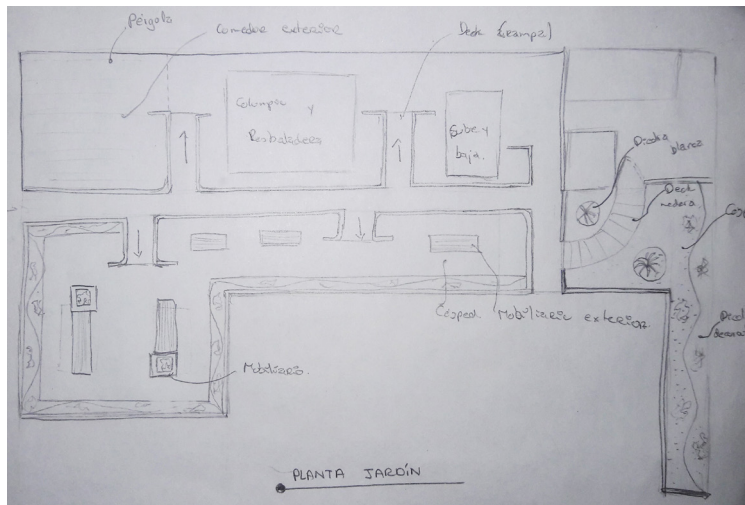 Pérgola
Comedor exterior
Deck (rampa)
Columpio y
Resbaladera
Sube y
baja.
Piedra blanca
Deck
madera
Césped Mobiliario exterior
Mobiliario.
PLANTA JARDÍN